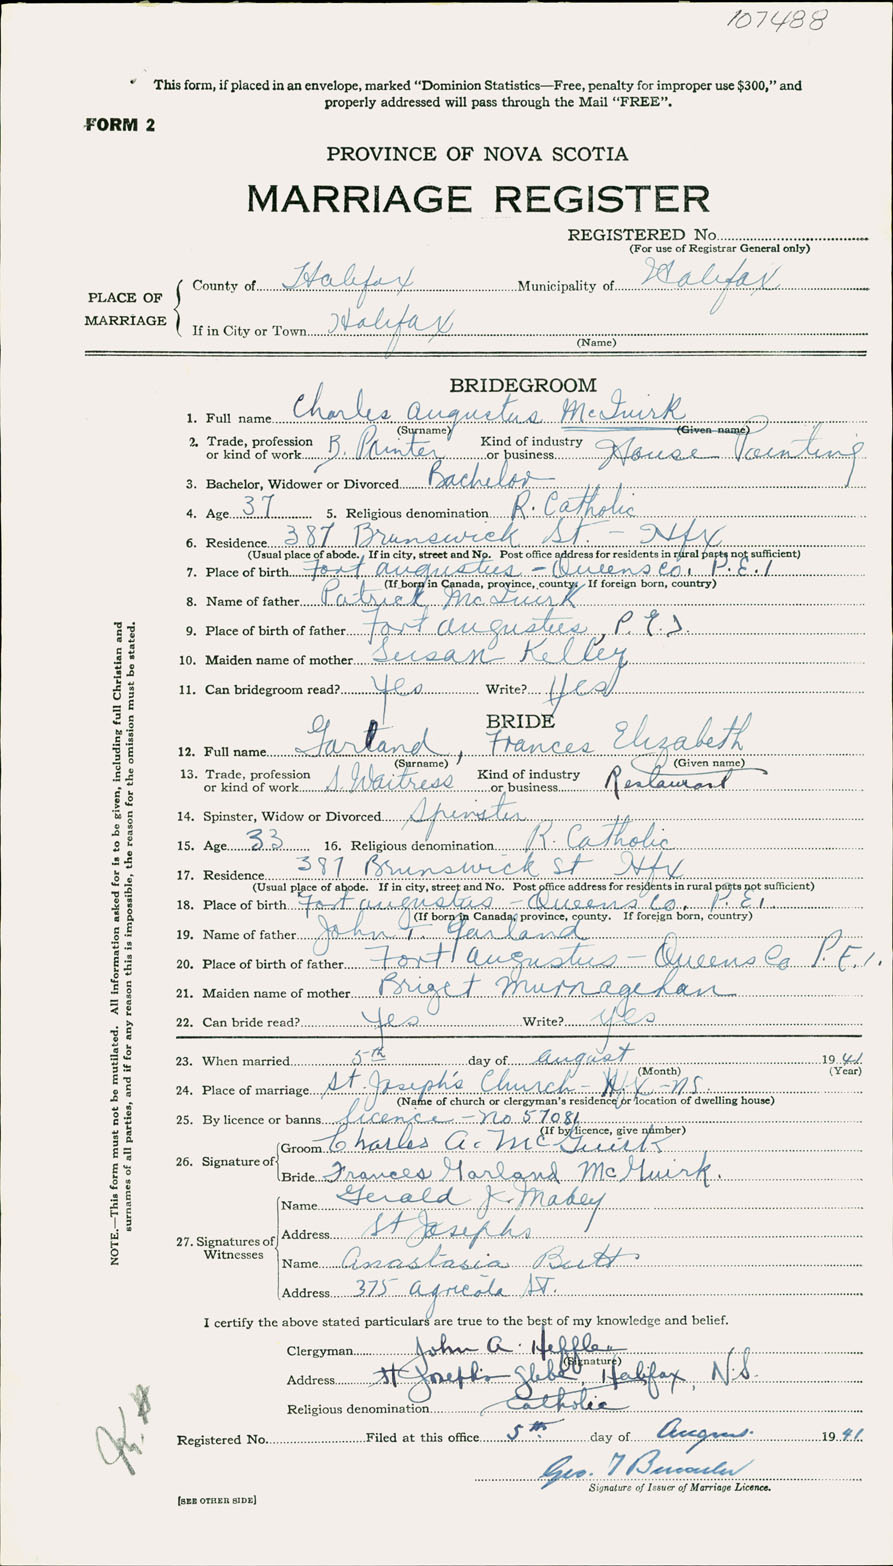 107488
This form, if placed in an envelope, marked "Dominion Statistics—Free, penalty for improper use $300," and
properly addressed will pass through the Mail "FREE".
FORM 2
PROVINCE OF NOVA SCOTIA
MARRIAGE REGISTER
REGISTERED No.
(For use of Registrar General only)
PLACE OF MARRIAGE
County of Halifax Municipality of Halifax
If in City or Town Halifax
(Name)
BRIDEGROOM
1. Full name Charles Augustus McGuirk
(Surname) (Given name)
2. Trade, profession or kind of work B. Painter Kind of industry or business House Painting
3. Bachelor, Widower or Divorced Bachelor
4. Age 37 5. Religious denomination R. Catholic
6. Residence 387 Brunswick St. - Hfx
(Usual place of abode. If in city, street and No. Post office address for residents in rural parts not sufficient)
7. Place of birth Fort Augustus - Queens Co. P.E.I
(If born in Canada, province, county. If foreign born, country)
8. Name of father Patrick McGuirk
9. Place of birth of father Fort Augustus, P.E.I.
10. Maiden name of mother Susan Kelley
11. Can bridegroom read? Yes Write? Yes
BRIDE
12. Full name Garland, Frances Elizabeth
(Surname) (Given name)
13. Trade, profession or kind of work Waitress Kind of industry or business Restaurant
14. Spinster, Widow or Divorced Spinster
15. Age 33 16. Religious denomination R. Catholic
17. Residence 387 Brunswick St Hfx
(Usual place of abode. If in city, street and No. Post office address for residents in rural parts not sufficient)
18. Place of birth Fort Augustus - Queens Co. P.E.I.
(If born in Canada, province, county. If foreign born, country)
19. Name of father John T. Garland
20. Place of birth of father Fort Augustus - Queens Co P.E.I.
21. Maiden name of mother Briget Murnagehan
22. Can bride read? Yes Write? Yes
23. When married 5th day of August 1941
(Month) (Year)
24. Place of marriage St. Joseph's Church - Hfx - N.S.
(Name of church or clergyman's residence or location of dwelling house)
25. By licence or banns licence - No 57081
(If by licence, give number)
26. Signature of
Groom Charles A. McGuirk
Bride Frances Garland McGuirk.
27. Signatures of Witnesses
Name Gerald J. Mabey
Address St Josephs
Name Anastasia Butt
Address 375 Agricola St.
I certify the above stated particulars are true to the best of my knowledge and belief.
Clergyman John A. Heffler
(Signature)
Address St Joseph's Glebe, Halifax, N.S.
Religious denomination Catholic
Registered No. Filed at this office 5th day of August 1941
Geo. T
Signature of Issuer of Marriage Licence.
[SEE OTHER SIDE]
NOTE.—This form must not be mutilated. All information asked for is to be given, including full Christian and
surnames of all parties, and if for any reason this is impossible, the reason for the omission must be stated.